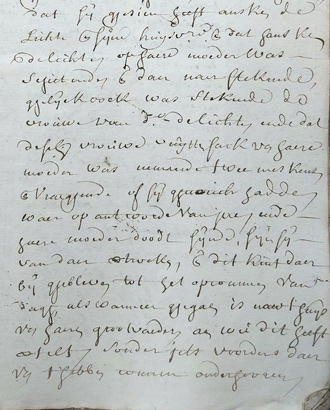 dat sij gesien heeft ansken de
Lichte & sijne huijsvre. & dat hansken
de Lichte, op haere moeder was
schietende & daer naer stekende,
gelijck oock was stekende de
vrouwe van de Lichte, ende dat
deselve vrouwe uijtte sack van haere
moeder was nemende twee meskens
& vraegende of sij gheen hadde,
waer op antwoorde van jaen ende
haere moeder doodt sijnde, sijn sij
van daer vertrocken, & dit kint daer
bij gebleven tot het opcommen van
dagh, als wanneer gegaen is naer 't huijs
van haeren grootvader, aen wie dit heeft
vertelt, sonder iets voorders daer
van t'hebben connen ondervinden